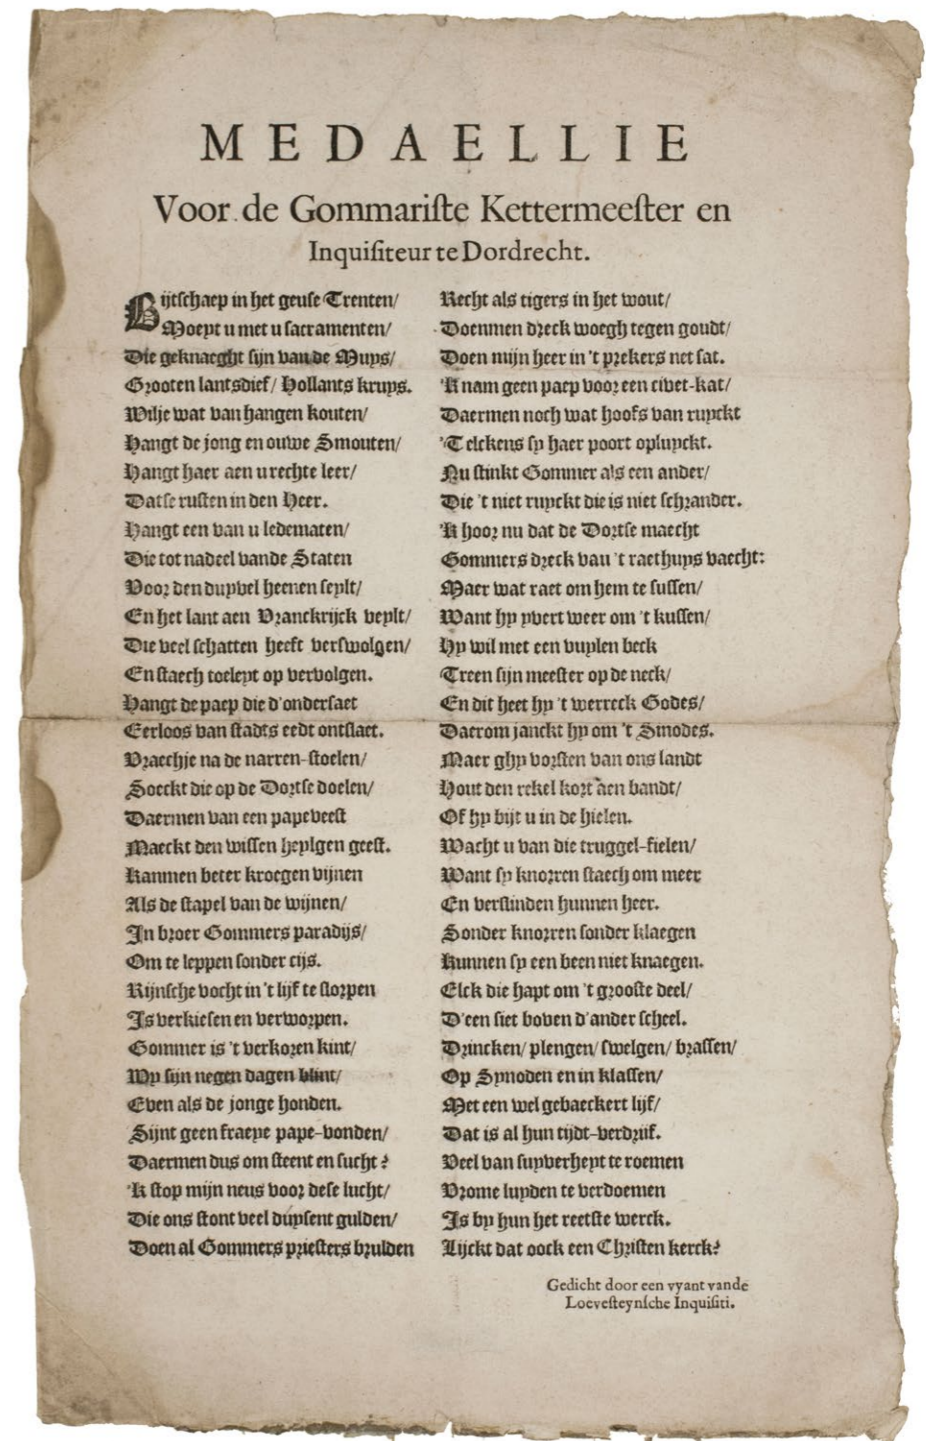 MEDAELLIE
Voor de Gommariste Kettermeester en
Inquisiteur te Dordrecht.
Bijtschaep in het geuse Trenten/
Moeyt u met u sacramenten/
Die geknaeght sijn van de Muys/
Grooten lantsdief/ Hollants kruys.
Wilje wat van hangen kouten/
Hangt de jong en ouwe Smouten/
Hangt haer aen u rechte leer/
Datse rusten in den Heer.
Hangt een van u ledematen/
Die tot nadeel vande Staten
Voor den duyvel heenen seylt/
En het lant aen Vranckrijck veylt/
Die veel schatten heeft verswolgen/
En staech toeleyt op vervolgen.
Hangt de paep die d'ondersaet
Eerloos van stadts eedt ontslaet.
Vraechje na de narren-stoelen/
Soeckt die op de Dortse doelen/
Daermen van een papeveest
Maeckt den wissen heylgen geest.
Kanmen beter kroegen vijnen
Als de stapel van de wijnen/
In broer Gommers paradijs/
Om te leppen sonder cijs.
Rijnsche vocht in 't lijf te slorpen
Is verkiesen en verworpen.
Gommer is 't verkoren kint/
Wy sijn negen dagen blint/
Even als de jonge honden.
Sijnt geen fraeye pape-vonden/
Daermen dus om steent en sucht?
'K stop mijn neus voor dese lucht/
Die ons stont veel duysent gulden/
Doen al Gommers priesters brulden
Recht als tigers in het wout/
Doenmen dreck woegh tegen goudt/
Doen mijn heer in 't prekers net sat.
'K nam geen paep voor een civet-kat/
Daermen noch wat hoofs van ruyckt
'Telckens sy haer poort opluyckt.
Nu stinkt Gommer als een ander/
Die 't niet ruyckt die is niet schrander.
'K hoor nu dat de Dortse maecht
Gommers dreck van 't raethuys vaecht:
Maer wat raet om hem te sussen/
Want hy yvert weer om 't kussen/
Hy wil met een vuylen beck
Treen sijn meester op de neck/
En dit heet hy 't werreck Godes/
Daerom janckt hy om 't Sinodes.
Maer ghy vorsten van ons landt
Hout den rekel kort aen bandt/
Of hy bijt u in de hielen.
Wacht u van die truggel-fielen/
Want sy knorren staech om meer
En verslinden hunnen heer.
Sonder knorren sonder klaegen
Kunnen sy een been niet knaegen.
Elck die hapt om 't grooste deel/
D'een siet boven d'ander scheel.
Drincken/ plengen/ swelgen/ brassen/
Op Synoden en in klassen/
Met een wel gebaeckert lijf/
Dat is al hun tijdt-verdrijf.
Veel van suyverheyt te roemen
Vrome luyden te verdoemen
Is by hun het reetste werck.
Lijckt dat oock een Christen kerck?
Gedicht door een vyant vande
Loevesteynsche Inquisiti.